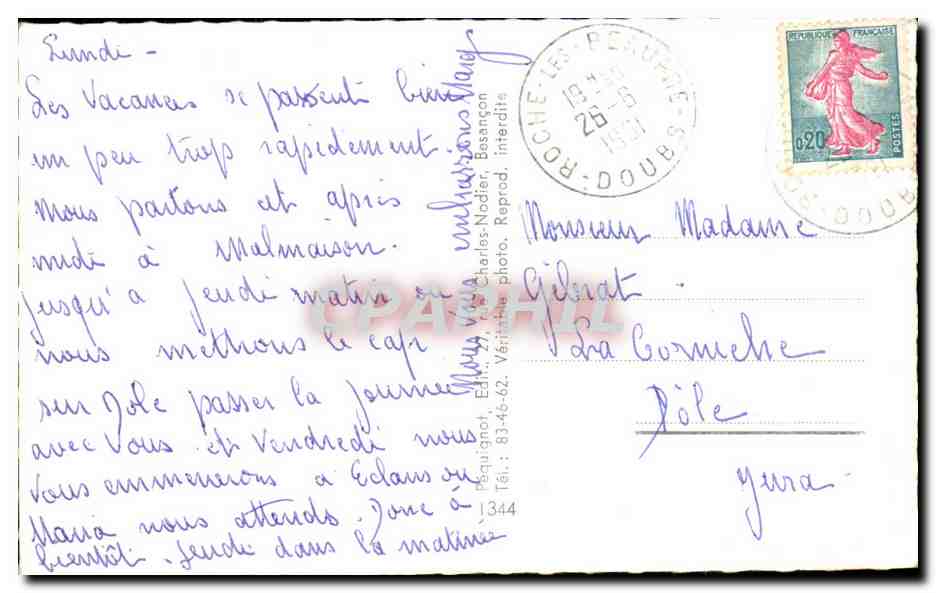 Lundi -
Les Vacances se passent bien
un peu trop rapidement.
Nous partons cet après
midi à Malmaison.
jusqu'à jeudi matin ou
nous methons le cap
sur Dole passer la journée
avec vous et Vendredi nous
vous emmenerons a Eclans ou
Maria nous attends. Donc à
bientôt. Jeudi dans la matinée
Nous vous embrassons
Péquignot, Edit., 29, rue Charles-Nodier, Besançon
Tél. : 83-46-62. Véritable photo. Reprod. interdite
1344
ROCHE-LES-BEAUPRE
DOUBS
26-6
REPUBLIQUE FRANÇAISE
0,20
POSTES
Monsieur Madame
Gibrat
La Corniche
Dôle
Jura
CPARPHIL